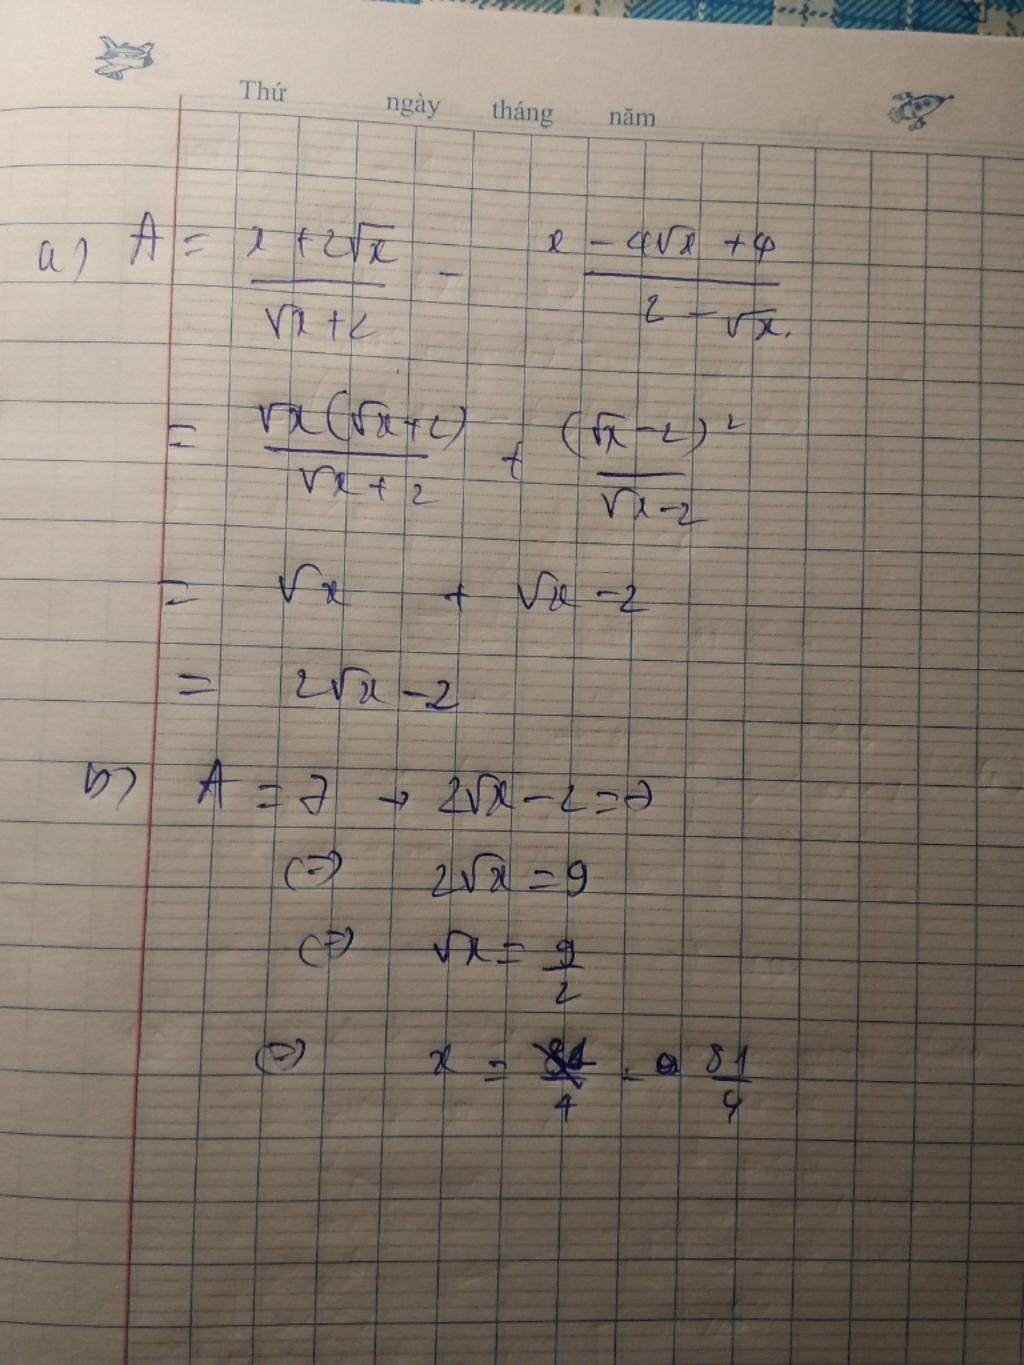 Thứ ngày tháng năm
a) A = \frac{x + 2\sqrt{x}}{\sqrt{x} + 2} - \frac{x - 4\sqrt{x} + 4}{2 - \sqrt{x}}.
= \frac{\sqrt{x}(\sqrt{x} + 2)}{\sqrt{x} + 2} + \frac{(\sqrt{x} - 2)^2}{\sqrt{x} - 2}
= \sqrt{x} + \sqrt{x} - 2
= 2\sqrt{x} - 2
b) A = 7 → 2\sqrt{x} - 2 = 7
(=) 2\sqrt{x} = 9
(=) \sqrt{x} = \frac{9}{2}
(=) x = \frac{81}{4}